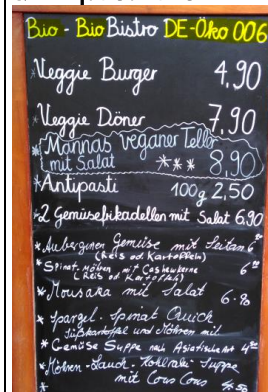 Bio - Bio Bistro DE-Öko 006
*Veggie Burger 4,90
*Veggie Döner 7,90
*Mannas veganer Teller
mit Salat *** 8,90
*Antipasti 100g 2,50
*2 Gemüsefrikadellen mit Salat 6.90
*Auberginen Gemüse mit Seitan 6
(Reis od Kartoffeln)
*Spinat. Möhren mit Cashewkerne 6
(Reis od Kartoffeln)
*Mousaka mit Salat 6.80
*Spargel. Spinat Quich
Süßkartoffel und Möhren mit
*Gemüse Suppe nach Asiatische Art 4
*Möhren-Lauch-Kohlrabi Suppe
mit Cous Cous 4.50
*